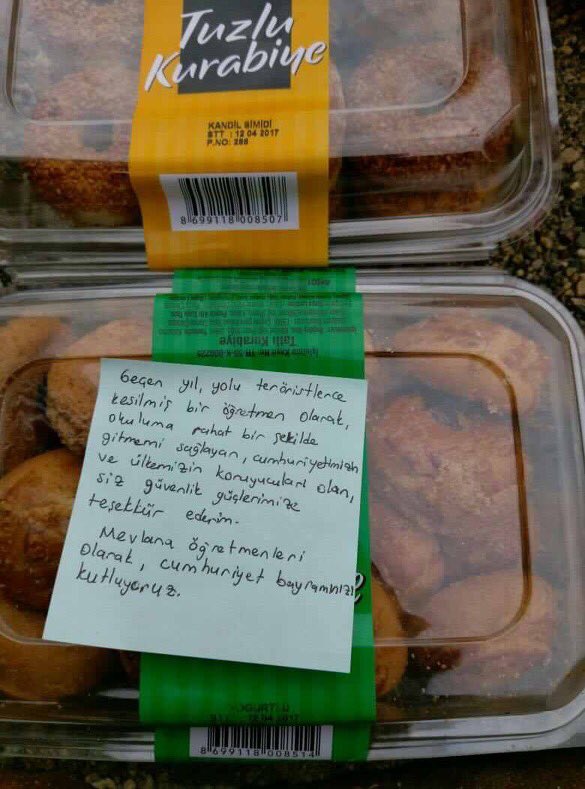 Tuzlu
Kurabiye
KANDİL SİMİDİ
STT : 12 04 2017
P.NO: 288
8 699118 008507
Tatlı Kurabiye
Geçen yıl, yolu teröristlerce
kesilmiş bir öğretmen olarak,
okuluma rahat bir şekilde
gitmemi sağlayan, cumhuriyetimizin
ve ülkemizin koruyucuları olan,
siz güvenlik güçlerimize
teşekkür ederim.
Mevlana öğretmenleri
olarak, cumhuriyet bayramınızı
kutluyoruz.
YOĞURTLU
12 04 2017
8 699118 008514